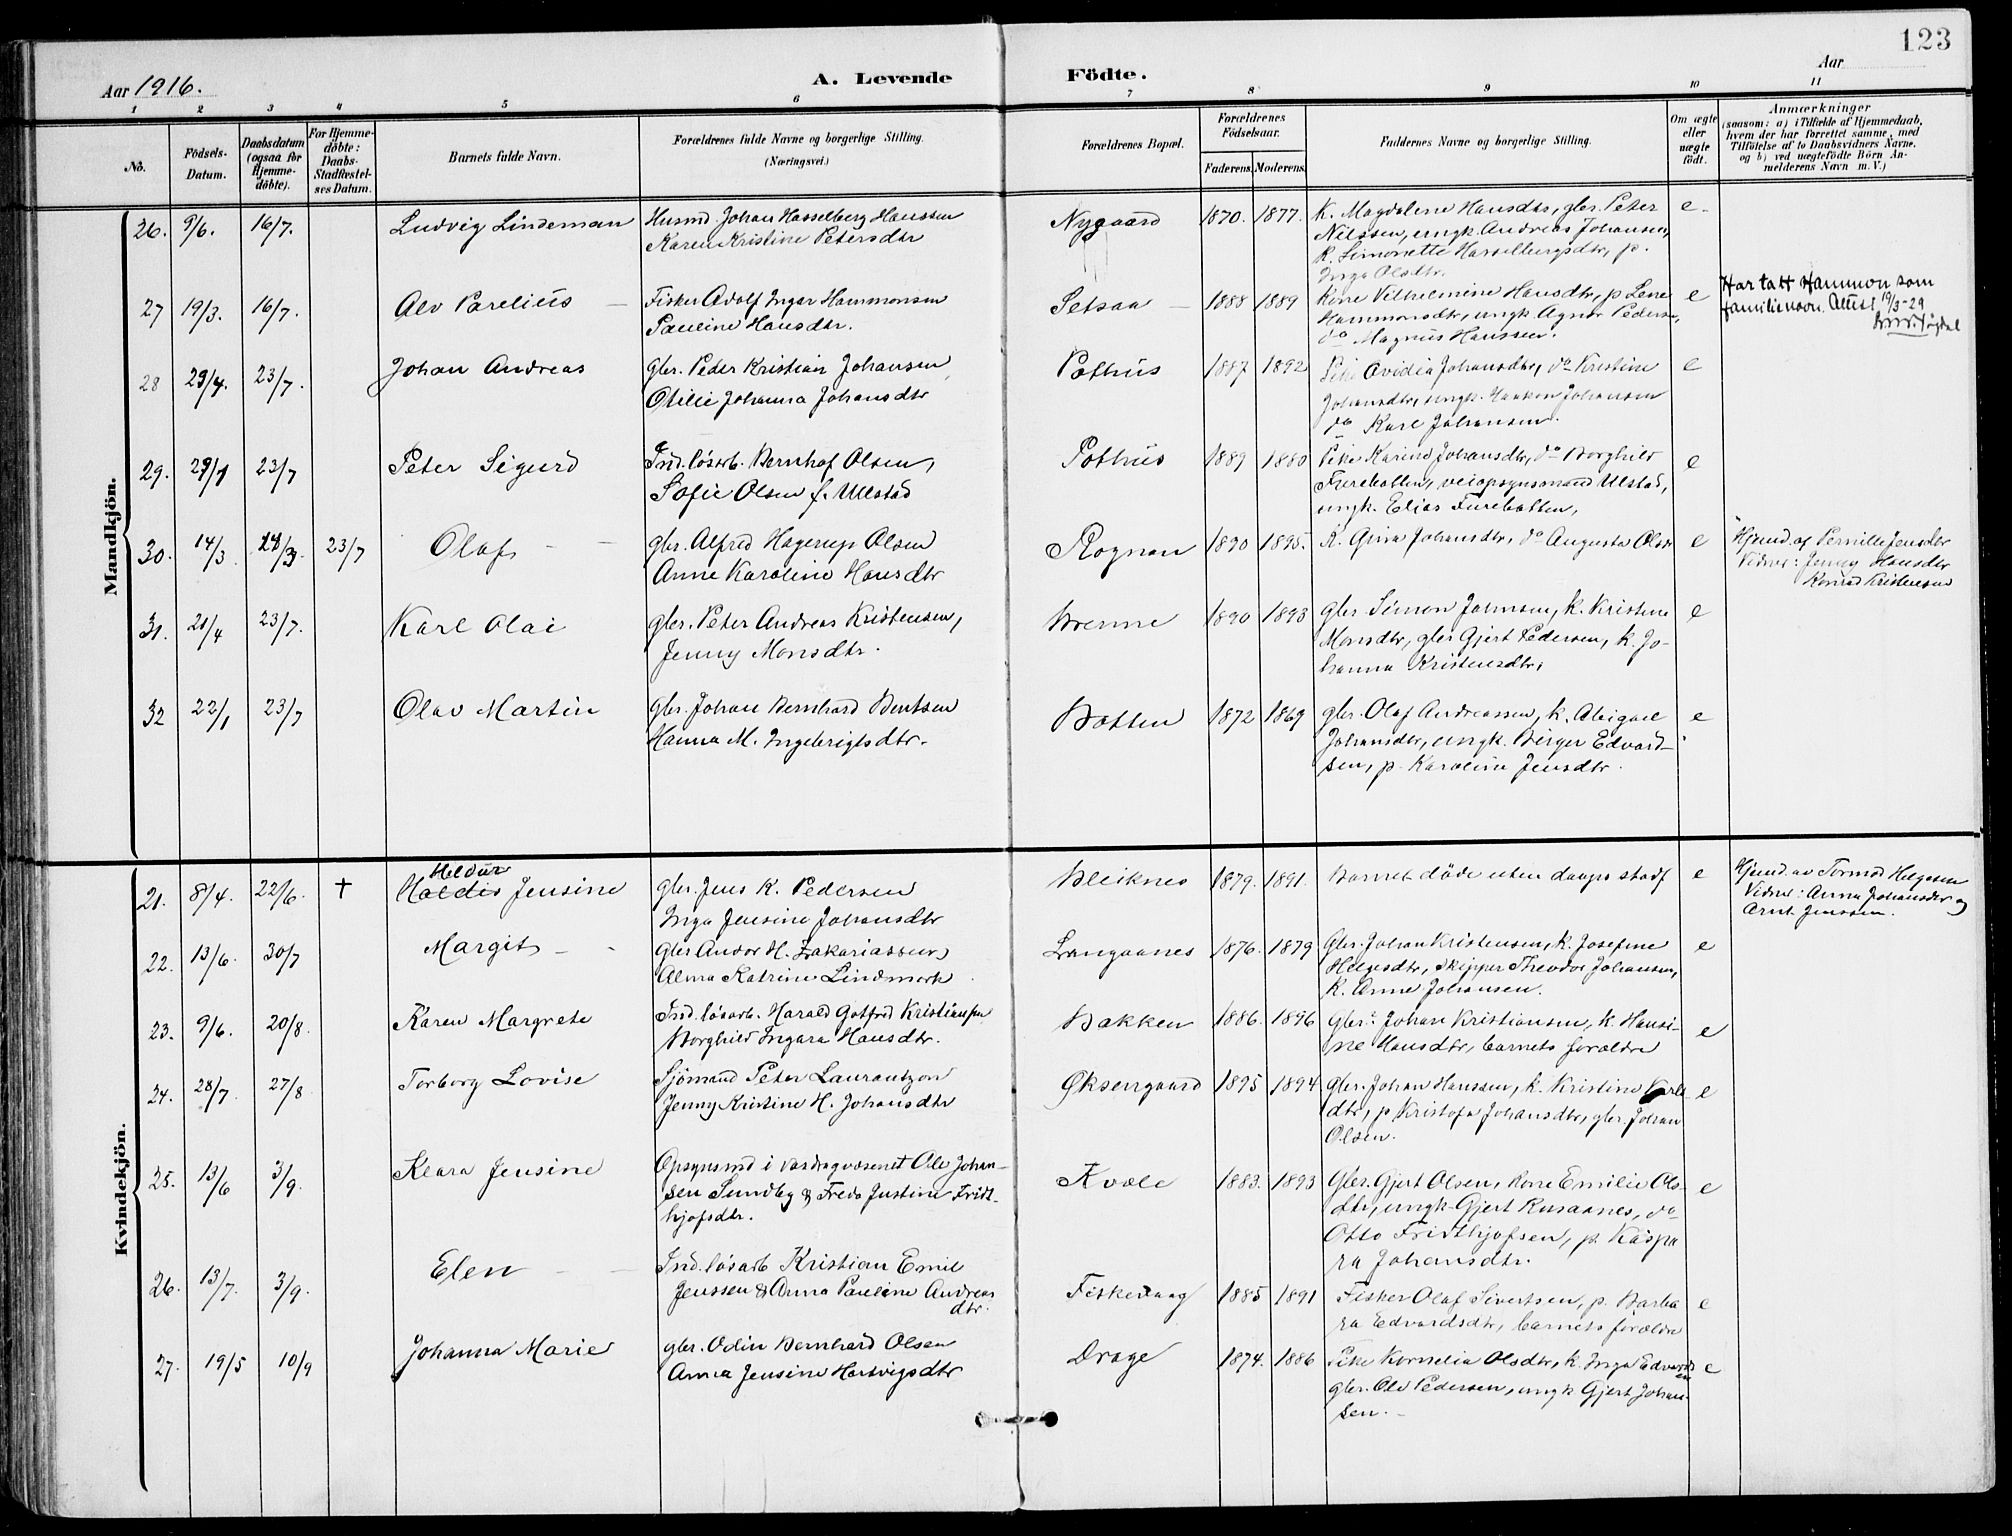 123
Aar 1916.
A. Levende
Födte.
Aar
1 2 3 4 5 6 7 8 9 10 11
No.
Födsels-Datum.
Daabsdatum (ogsaa for Hjemme-döbte).
For Hjemme-döbte: Daabs-Stadfæstel-ses Datum.
Barnets fulde Navn.
Forældrenes fulde Navne og borgerlige Stilling.
(Næringsvei.)
Forældrenes Bopæl.
Forældrenes Födselsaar.
Faderens. Moderens.
Faddernes Navne og borgerlige Stilling.
Om ægte eller uægte födt.
Anmærkninger
(saasom: a) i Tilfælde af Hjemmedaab,
hvem der har forrettet samme, med
Tilföielse af to Daabsvidners Navne,
og b) ved uægtefödte Börn An-
melderens Navn m. V.)
Mandkjön.
26. 9/6. 16/7. Ludvig Lindeman Husmd. Johan Hasselberg Hanssen Nygaard 1870. 1877. K. Magdalene Hansdtr, gbr. Peter e
Karen Kristine Petersdtr Nilssen, ungk. Andreas Johansen,
K. Simonette Hasselbergsdtr, p.
Inga Olsdtr.
27 19/3. 16/7. Alv Parelius Fisker Adolf Inger Hammonsen Setsaa 1888 1889 Kone Vilhelmine Hansdtr, p Lene e Har tatt Hammon som
Pauline Hansdtr. Hammonsdtr, ungk. Agnar Pedersen, familienavn. Attest 19/3-29
do Magnus Hanssen.
28 29/4. 23/7. Johan Andreas gbr. Peder Kristian Johansen Pothus 1887 1892 Pike Avidia Johansdtr, do Kristine e
Otilie Johanna Johansdtr Johansdtr, ungk. Haakon Johansen
do Karl Johansen.
29. 29/1 23/7 Peter Sigurd Ind. løsarb. Bernhof Olsen, Pothus 1889 1880 Pike Karine Johansdtr, do Borghild e
Sofie Olsen f. Ulstad Furebotten, veiopsynsmand Ulstad,
ungk. Elias Furebotten,
30. 14/3 23/7 Olaf gbr. Alfred Hagerup Olsen Rognan 1890 1895. K. Gina Johansdtr, do Augusta Olsdtr e Hjemd. af Pernille Jensdtr
Anne Karoline Hansdtr Vidner: Jenny Hansdtr
Konrad Kristensen
31. 21/4 23/7. Karl Olai gbr. Peter Andreas Kristensen, Brenne 1890 1893 gbr. Simon Johnsen, K. Kristine e
Jenny Monsdtr. Monsdtr, gbr Gjert Pedersen, K. Jo-
hanna Kristensdtr,
32 22/1 23/7 Olav Martin gbr. Johan Bernhard Bentsen Botten 1872 1869 gbr. Olaf Andreassen, k. Abigael e
Hanna M. Ingebrigtsdtr. Johansdtr, ungk. Birger Edvard-
sen, p. Karoline Jensdtr.
Kvindekjön.
21. 8/4. 22/6. † Haldis Jensine gbr. Jens K. Pedersen Bleiknes 1879. 1891. Barnet døde uten daaps stadf e Hjemd. av Tormod Helgesen
Heldur
Inga Jensine Johansdtr Vidner: Anna Johansdtr og
Arnt Jenssen.
22. 13/6. 30/7 Margit Gbr. Andor H. Zakariassen Langaanes 1876. 1879 Gbr. Johan Kristensen, K. Josefine e
Alma Katrine Lindmark Helgesdtr, skipper Theodor Johansen,
K. Anne Johansen.
23. 9/6. 20/8. Karen Margrete Ind. løsarb. Harald Gotfred Kristiansen Bakken 1886. 1896 Gbr. Johan Kristiansen, k. Hansi- e
Borghild Ingara Hansdtr. ne Hansdtr, barnets forældre
24. 28/7 27/8 Torborg Lovise Sjömand Peter Laurantzon Øksengaard 1895 1894 gbr. Johan Hanssen, k. Kristine Karls- e
Jenny Kristine H. Johansdtr dtr, p Kristofa Johansdtr, gbr. Johan
Olsen.
25. 13/6 3/9. Klara Jensine Opsynsmd i vasdragvæsenet Ole Johan- Kvæle 1883. 1893 Gbr. Gjert Olsen, kone Emilie Ols- e
sen Sundby & Freda Justine Fridt- dtr, ungk Gjert Rusaanes, do
hjofsdtr. Otto Fridthjofsen, p. Kaspa
ra Johansdtr.
26. 13/7. 3/9. Elen Ind. løsarb Kristian Emil Fiskevaag 1885 1891 Fisker Olaf Sivertsen, p. Barba e
Jenssen & Anna Pauline Andreas ra Edvardsdtr, barnets forældre
dtr.
27. 19/5 10/9 Johanna Marie gbr. Odin Bernhard Olsen Drage 1874. 1886 Pike Kornelia Olsdtr, k. Inga Edvards e
Anna Jensine Hartvigsdtr gbr. Ole Pedersen, ungk Gjert Johan-
sen.